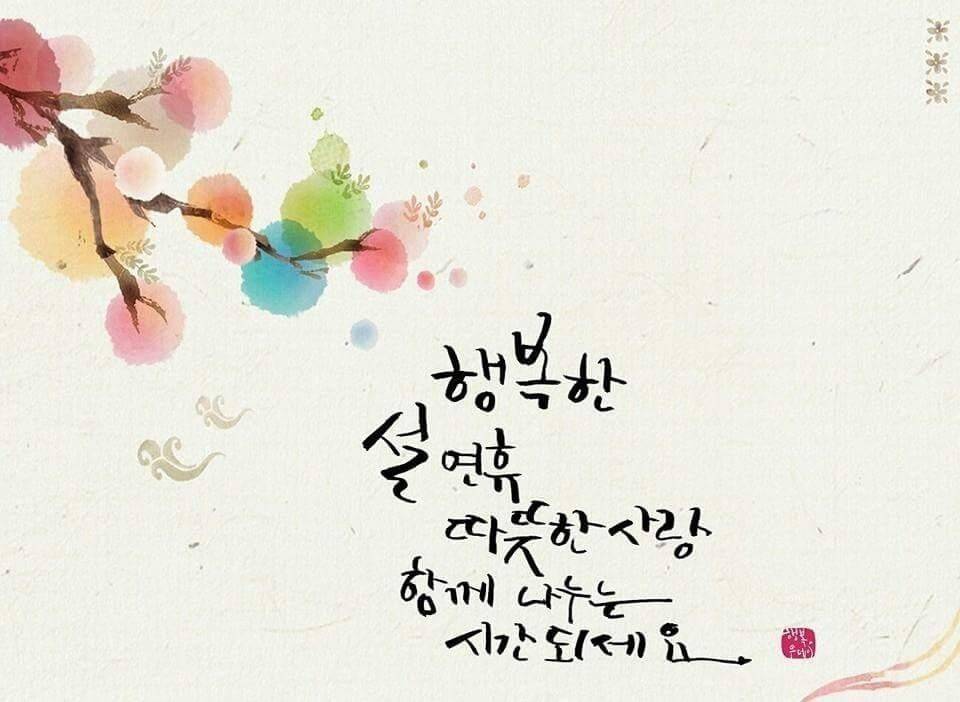 행복한
설 연휴
따뜻한 사랑
함께 나누는
시간 되세요.
행복.
우데이